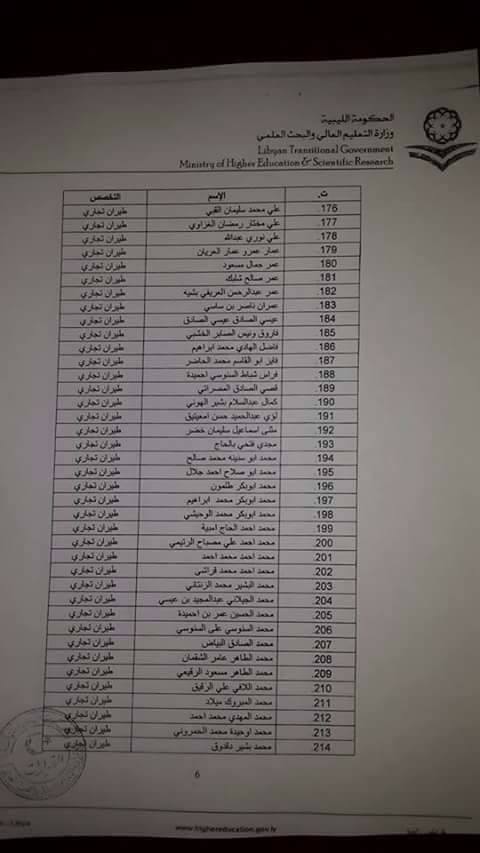 الحكومة الليبية
وزارة التعليم العالي والبحث العلمي
Libyan Transitional Government
Ministry of Higher Education & Scientific Research
ت. الإسم التخصص
176. علي محمد سليمان القبي طيران تجاري
177. علي مختار رمضان الغزاوي طيران تجاري
178. علي نوري عبدالله طيران تجاري
179. عمار عمرو عمار العريان طيران تجاري
180. عمر جمال مسعود طيران تجاري
181. عمر صالح شلبك طيران تجاري
182. عمر عبدالرحمن العريفي بشيه طيران تجاري
183. عمران ناصر بن ساسي طيران تجاري
184. عيسي الصادق عيسي الصادق طيران تجاري
185. فاروق ونيس الصابر الختمي طيران تجاري
186. فاضل الهادي محمد ابراهيم طيران تجاري
187. فايز ابو القاسم محمد الحاضر طيران تجاري
188. فراس شباط السنوسي احميدة طيران تجاري
189. قصي الصادق المصراتي طيران تجاري
190. كمال عبدالسلام بشير الهوني طيران تجاري
191. لؤي عبدالحميد حسن امعيتيق طيران تجاري
192. مثنى اسماعيل سليمان خضر طيران تجاري
193. مجدي فتحي بالحاج طيران تجاري
194. محمد ابو سدينه محمد صالح طيران تجاري
195. محمد ابو صلاح احمد جلال طيران تجاري
196. محمد ابوبكر طلمون طيران تجاري
197. محمد ابوبكر محمد ابراهيم طيران تجاري
198. محمد ابوبكر محمد الوحيشي طيران تجاري
199. محمد احمد الحاج امدية طيران تجاري
200. محمد احمد علي مصباح الرتيمي طيران تجاري
201. محمد احمد محمد احمد طيران تجاري
202. محمد احمد محمد قراشي طيران تجاري
203. محمد البشير محمد الزنتاني طيران تجاري
204. محمد الجيلاني عبدالمجيد بن عيسي طيران تجاري
205. محمد الحسين عمر بن احميدة طيران تجاري
206. محمد السنوسي على السنوسي طيران تجاري
207. محمد الصادق البياض طيران تجاري
208. محمد الطاهر عامر الشقمان طيران تجاري
209. محمد الطاهر مسعود الرقيعي طيران تجاري
210. محمد اللافي علي الرقيق طيران تجاري
211. محمد المبروك ميلاد طيران تجاري
212. محمد المهدي محمد احمد طيران تجاري
213. محمد اوحيدة محمد الحمروني طيران تجاري
214. محمد بشير دقدوق طيران تجاري
6
www.highereducation.gov.ly